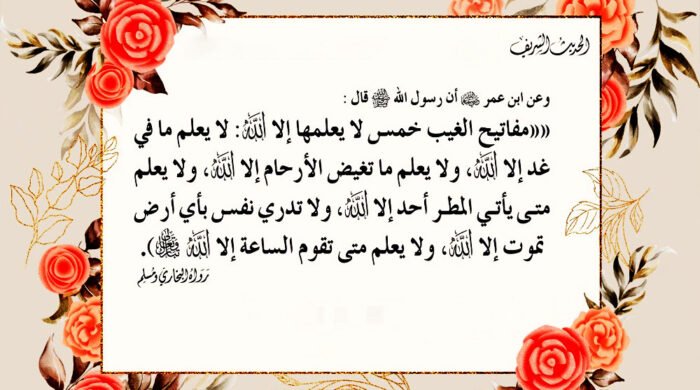 الحديث الشريف
وعن ابن عمر رضي الله عنهما أن رسول الله ﷺ قال :
«««مفاتيح الغيب خمس لا يعلمها إلا الله : لا يعلم ما في
غد إلا الله، ولا يعلم ما تغيض الأرحام إلا الله، ولا يعلم
متى يأتي المطر أحد إلا الله، ولا تدري نفس بأي أرض
تموت إلا الله، ولا يعلم متى تقوم الساعة إلا الله ).
رَوَاهُ البُخَاري وَمُسْلِم